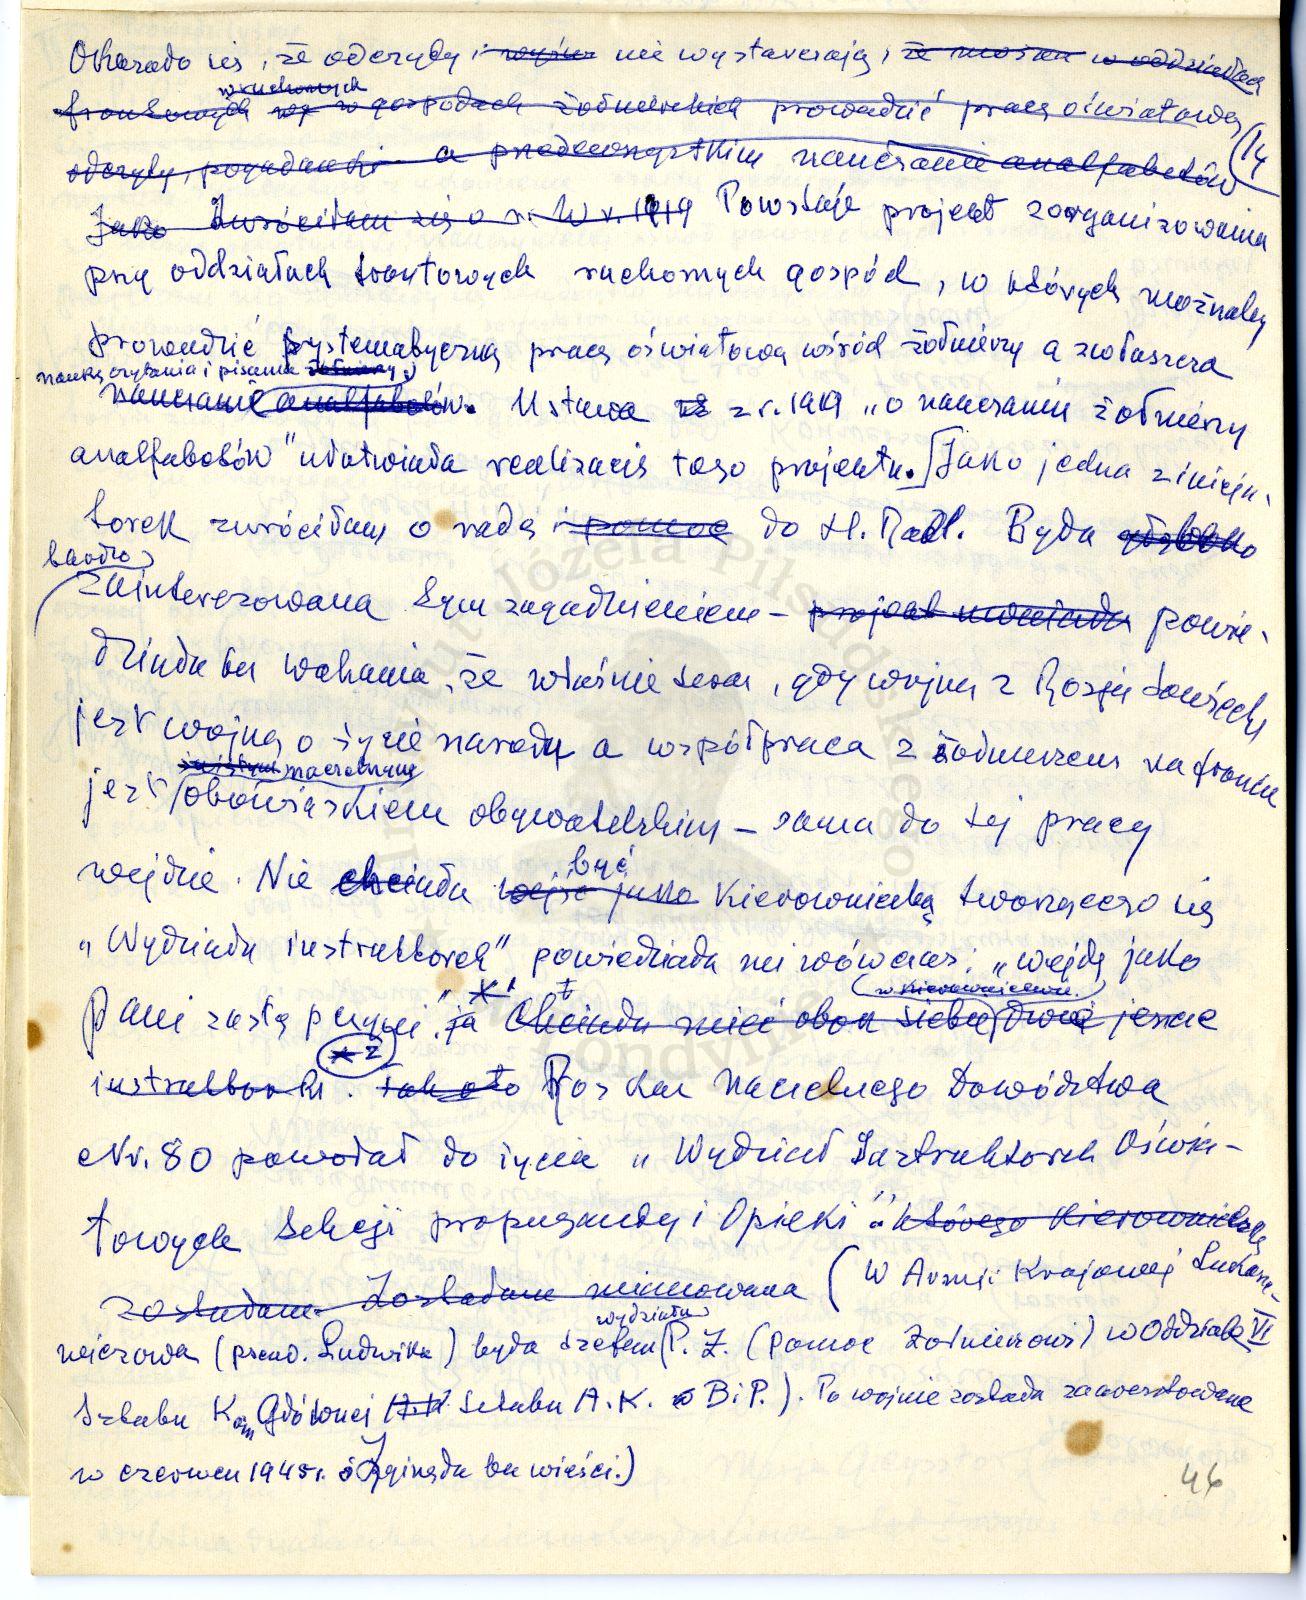 Okazało się, że odczyty i nie wystarczają, że można w oddziałach
w ruchomych
frontowych w gospodach żołnierskich prowadzić pracę oświatową
14
odczyty, pogadanki a przedewszystkim nauczanie analfabetów
Jako zwróciłam się o r. W r. 1919 Powstaje projekt zorganizowania
przy oddziałach frontowych ruchomych gospód, w których możnaby
prowadzić systematyczną pracę oświatową wśród żołnierzy a zwłaszcza
naukę czytania i pisania żołnierzy
nauczanie analfabetów. Ustawa z r. 1919 „o nauczaniu żołnierzy
analfabetów" ułatwiała realizację tego projektu. Jako jedna z inicja-
torek zwróciłam o radę i pomoc do H. Radl. Była głęboko
bardzo
zainteresowana tym zagadnieniem – projekt powie-
działa bez wahania, że właśnie teraz, gdy wojna z Rosją Sowiecką
jest wojną o życie narodu a współpraca z żołnierzem na froncie
naczelnym
jest obowiązkiem obywatelskim – sama do tej pracy
wejdzie. Nie chciała wejść jako być kierowniczką tworzącego się
„Wydziału instruktorek" powiedziała mi wówczas: „wejdę jako
w kierownictwie
Pani zastępczyni". ja Chciała mieć obok siebie dwie jeszcze
x 2
instruktorki. tak oto Rozkaz Naczelnego Dowództwa
Nr. 80 powołał do życia „Wydział Instruktorek Oświa-
towych Sekcji propagandy i Opieki" którego kierowniczką
zostałam. Zostałam mianowana (W Armji Krajowej Łukasze-
wydziału
wiczowa (pseud. Ludwika) była szefem P. Ż. (Pomoc Żołnierzowi) w Oddziale VI
Sztabu Kom Głównej Sztabu A.K. B i P.). Po wojnie została zaaresztowana
w czerwcu 1945 r. Zginęła bez wieści.)
46
Instytut Józefa Piłsudskiego
Londyn